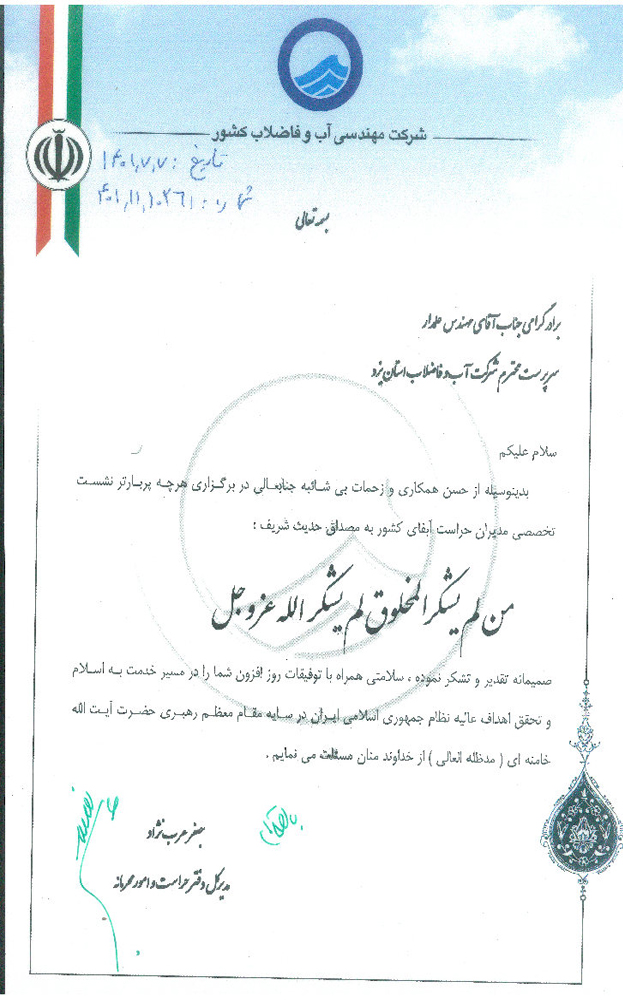 شرکت مهندسی آب و فاضلاب کشور
تاریخ : ۱۴۰۱,۷,۷
شماره : ۴۰۱,۱۱,۱۰۲۶۱
بسمه تعالی
برادر گرامی جناب آقای مهندس علمدار
سرپرست محترم شرکت آب و فاضلاب استان یزد
سلام علیکم
بدینوسیله از حسن همکاری و زحمات بی شائبه جنابعالی در برگزاری هرچه پربارتر نشست
تخصصی مدیران حراست آبفای کشور به مصداق حدیث شریف :
من لم یشکر المخلوق لم یشکر الله عزوجل
صمیمانه تقدیر و تشکر نموده ، سلامتی همراه با توفیقات روز افزون شما را در مسیر خدمت به اسلام
و تحقق اهداف عالیه نظام جمهوری اسلامی ایران در سایه مقام معظم رهبری حضرت آیت الله
خامنه ای ( مدظله العالی ) از خداوند منان مسئلت می نمایم .
جعفر عرب نژاد
مدیرکل دفتر حراست و امور محرمانه